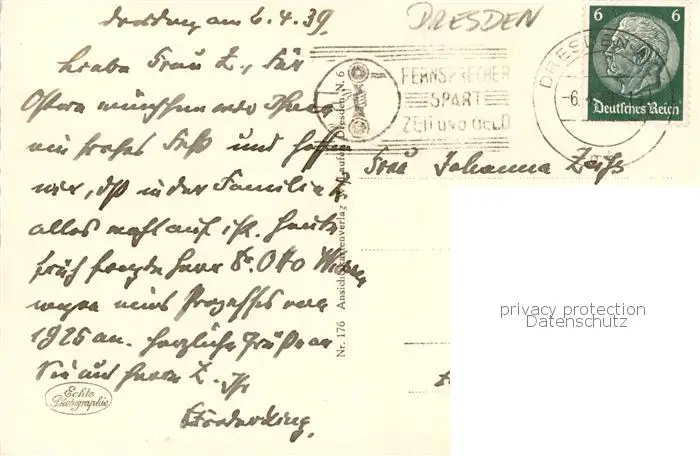 Dresden am 6.4.39
DRESDEN
Liebe Frau Z., Für
Ostern wünschen wir Ihnen
ein frohes Fest und hoffen
wir, daß in der Familie
alles wohl auf ist. Heute
früh fragte Herr Dr. Otto
wegen eines Prozesses von
1926 an. Herzliche Grüße an
Sie und Herrn Z. Ihr
FERNSPRECHER
SPART
ZEIT UND GELD
DRESDEN
6
6
Deutsches Reich
Frau Johanna
Nr. 176 Ansichtskartenverlag Dresden N. 6
Echte
Photographie
privacy protection
Datenschutz